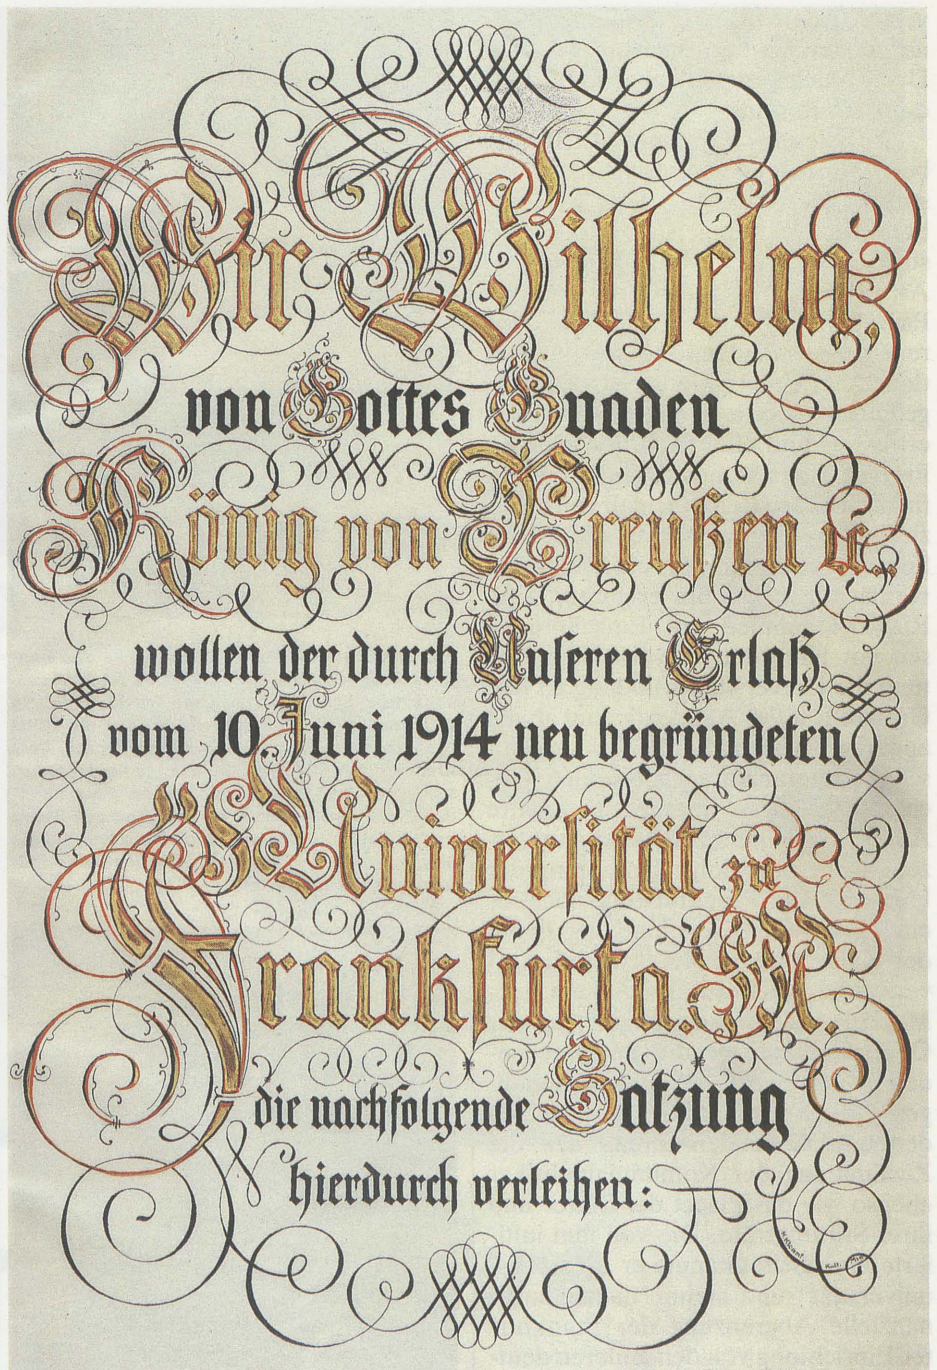 Wir Wilhelm,
von Gottes Gnaden
König von Preußen ꝛc.
wollen der durch Unseren Erlaß
vom 10. Juni 1914 neu begründeten
Universität zu
Frankfurt a. M.
die nachfolgende Satzung
hierdurch verleihen: